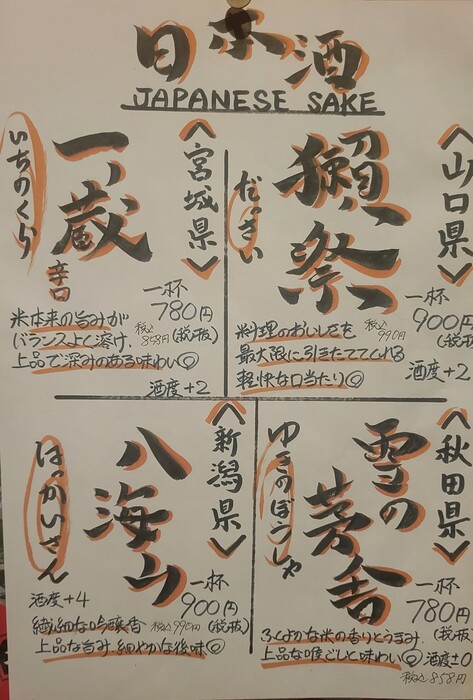 日本酒
JAPANESE SAKE
〈山口県〉
獺祭
だっさい
一杯
900円
(税抜)
税込
990円
料理のおいしさを
最大限に引きたててくれる
軽快な口当たり◎
酒度+2
〈宮城県〉
一ノ蔵
いちのくら
辛口
一杯
780円
(税抜)
税込
858円
米本来の旨みが
バランスよく溶け.
上品で深みのある味わい◎
酒度+2
〈秋田県〉
雪の茅舎
ゆきのぼうしゃ
一杯
780円
(税抜)
ふくよかな米の香りとうまみ.
上品な喉ごしと味わい◎ 酒度±0
税込858円
〈新潟県〉
八海山
はっかいさん
一杯
900円
(税抜)
税込990円
酒度+4
繊細な吟醸香
上品な旨み.細やかな後味◎